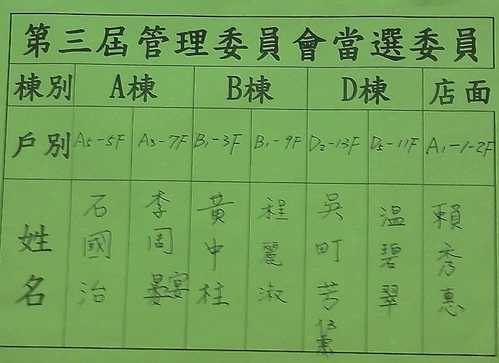 第三屆管理委員會當選委員
棟別 A棟 B棟 D棟 店面
戶別 A5-5F A3-7F B1-3F B1-9F D2-13F D5-11F A1-1-2F
姓名 石國治 李周宴 黃中柱 程麗淑 吳町芳 溫碧翠 賴秀惠